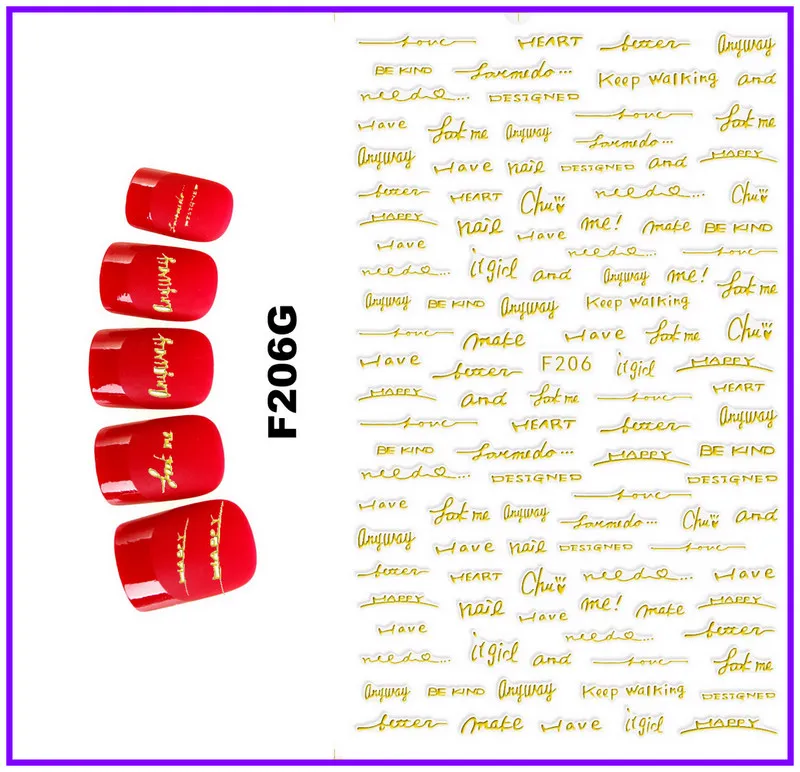 DESIGNED
Anyway
Anyway
Look me
HAPPY HAPPY
F206G
Love HEART better Anyway
BE KIND Keep walking and
need... DESIGNED
Love Look me
Have Look me Anyway
Anyway Have nail DESIGNED and HAPPY
better HEART Chu need... Chu
HAPPY nail Have me! make BE KIND
Have need... Love
need... it girl and Anyway me! Look me
Anyway BE KIND Anyway Keep walking
Love make Have Look me Chu
Have better F206 it girl HAPPY
HAPPY and Look me Love HEART
Love HEART better Anyway
BE KIND HAPPY BE KIND
need... DESIGNED DESIGNED
Love
Have Look me Anyway Chu and
Anyway Have nail DESIGNED Love
better HEART Chu need... Have
HAPPY nail Have me! make HAPPY
Have need... better
need... it girl and Love Look me
Anyway BE KIND Anyway Keep walking DESIGNED
better make Have it girl HAPPY